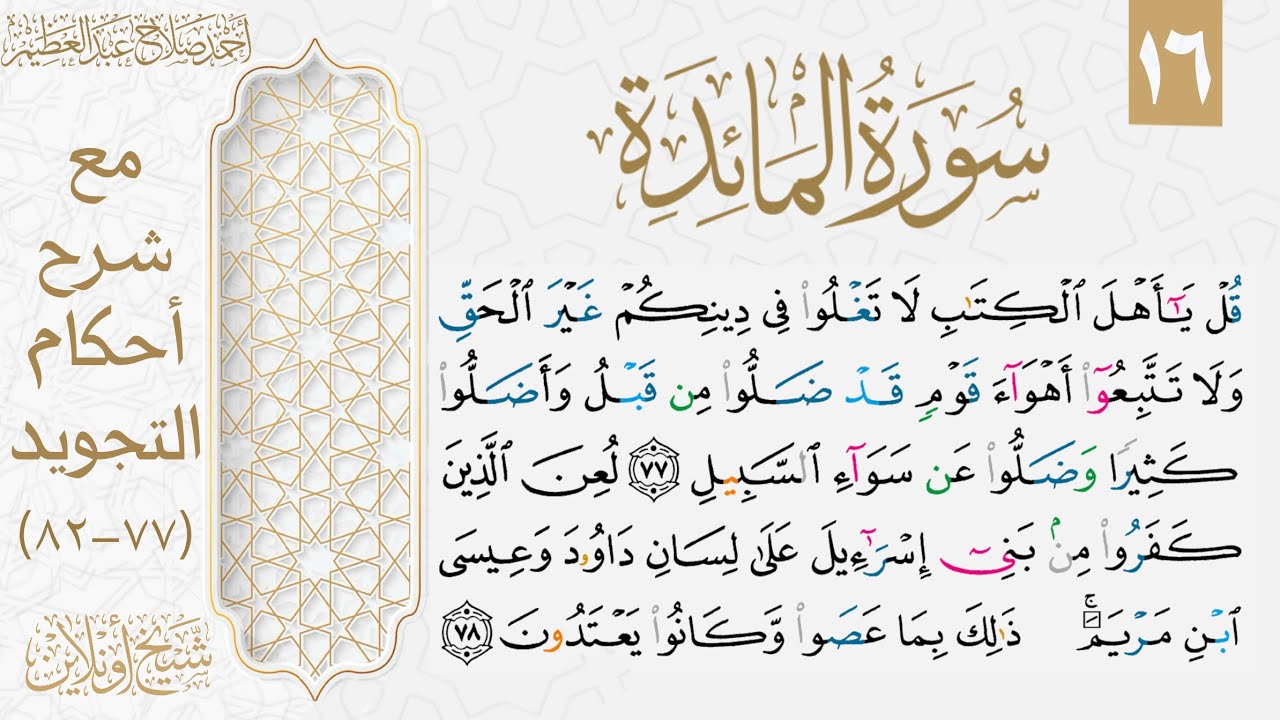 ١٦
سُورَةُ الْمَائِدَةِ
أحمد صلاح عبد العظيم
مع
شرح
أحكام
التجويد
(٧٧-٨٢)
شيخ أونلاين
قُلْ يَـٰٓأَهْلَ ٱلْكِتَـٰبِ لَا تَغْلُوا۟ فِى دِينِكُمْ غَيْرَ ٱلْحَقِّ
وَلَا تَتَّبِعُوٓا۟ أَهْوَآءَ قَوْمٍ قَدْ ضَلُّوا۟ مِن قَبْلُ وَأَضَلُّوا۟
كَثِيرًا وَضَلُّوا۟ عَن سَوَآءِ ٱلسَّبِيلِ ٧٧ لُعِنَ ٱلَّذِينَ
كَفَرُوا۟ مِنۢ بَنِىٓ إِسْرَٰٓءِيلَ عَلَىٰ لِسَانِ دَاوُۥدَ وَعِيسَى
ٱبْنِ مَرْيَمَ ۚ ذَٰلِكَ بِمَا عَصَوا۟ وَّكَانُوا۟ يَعْتَدُونَ ٧٨